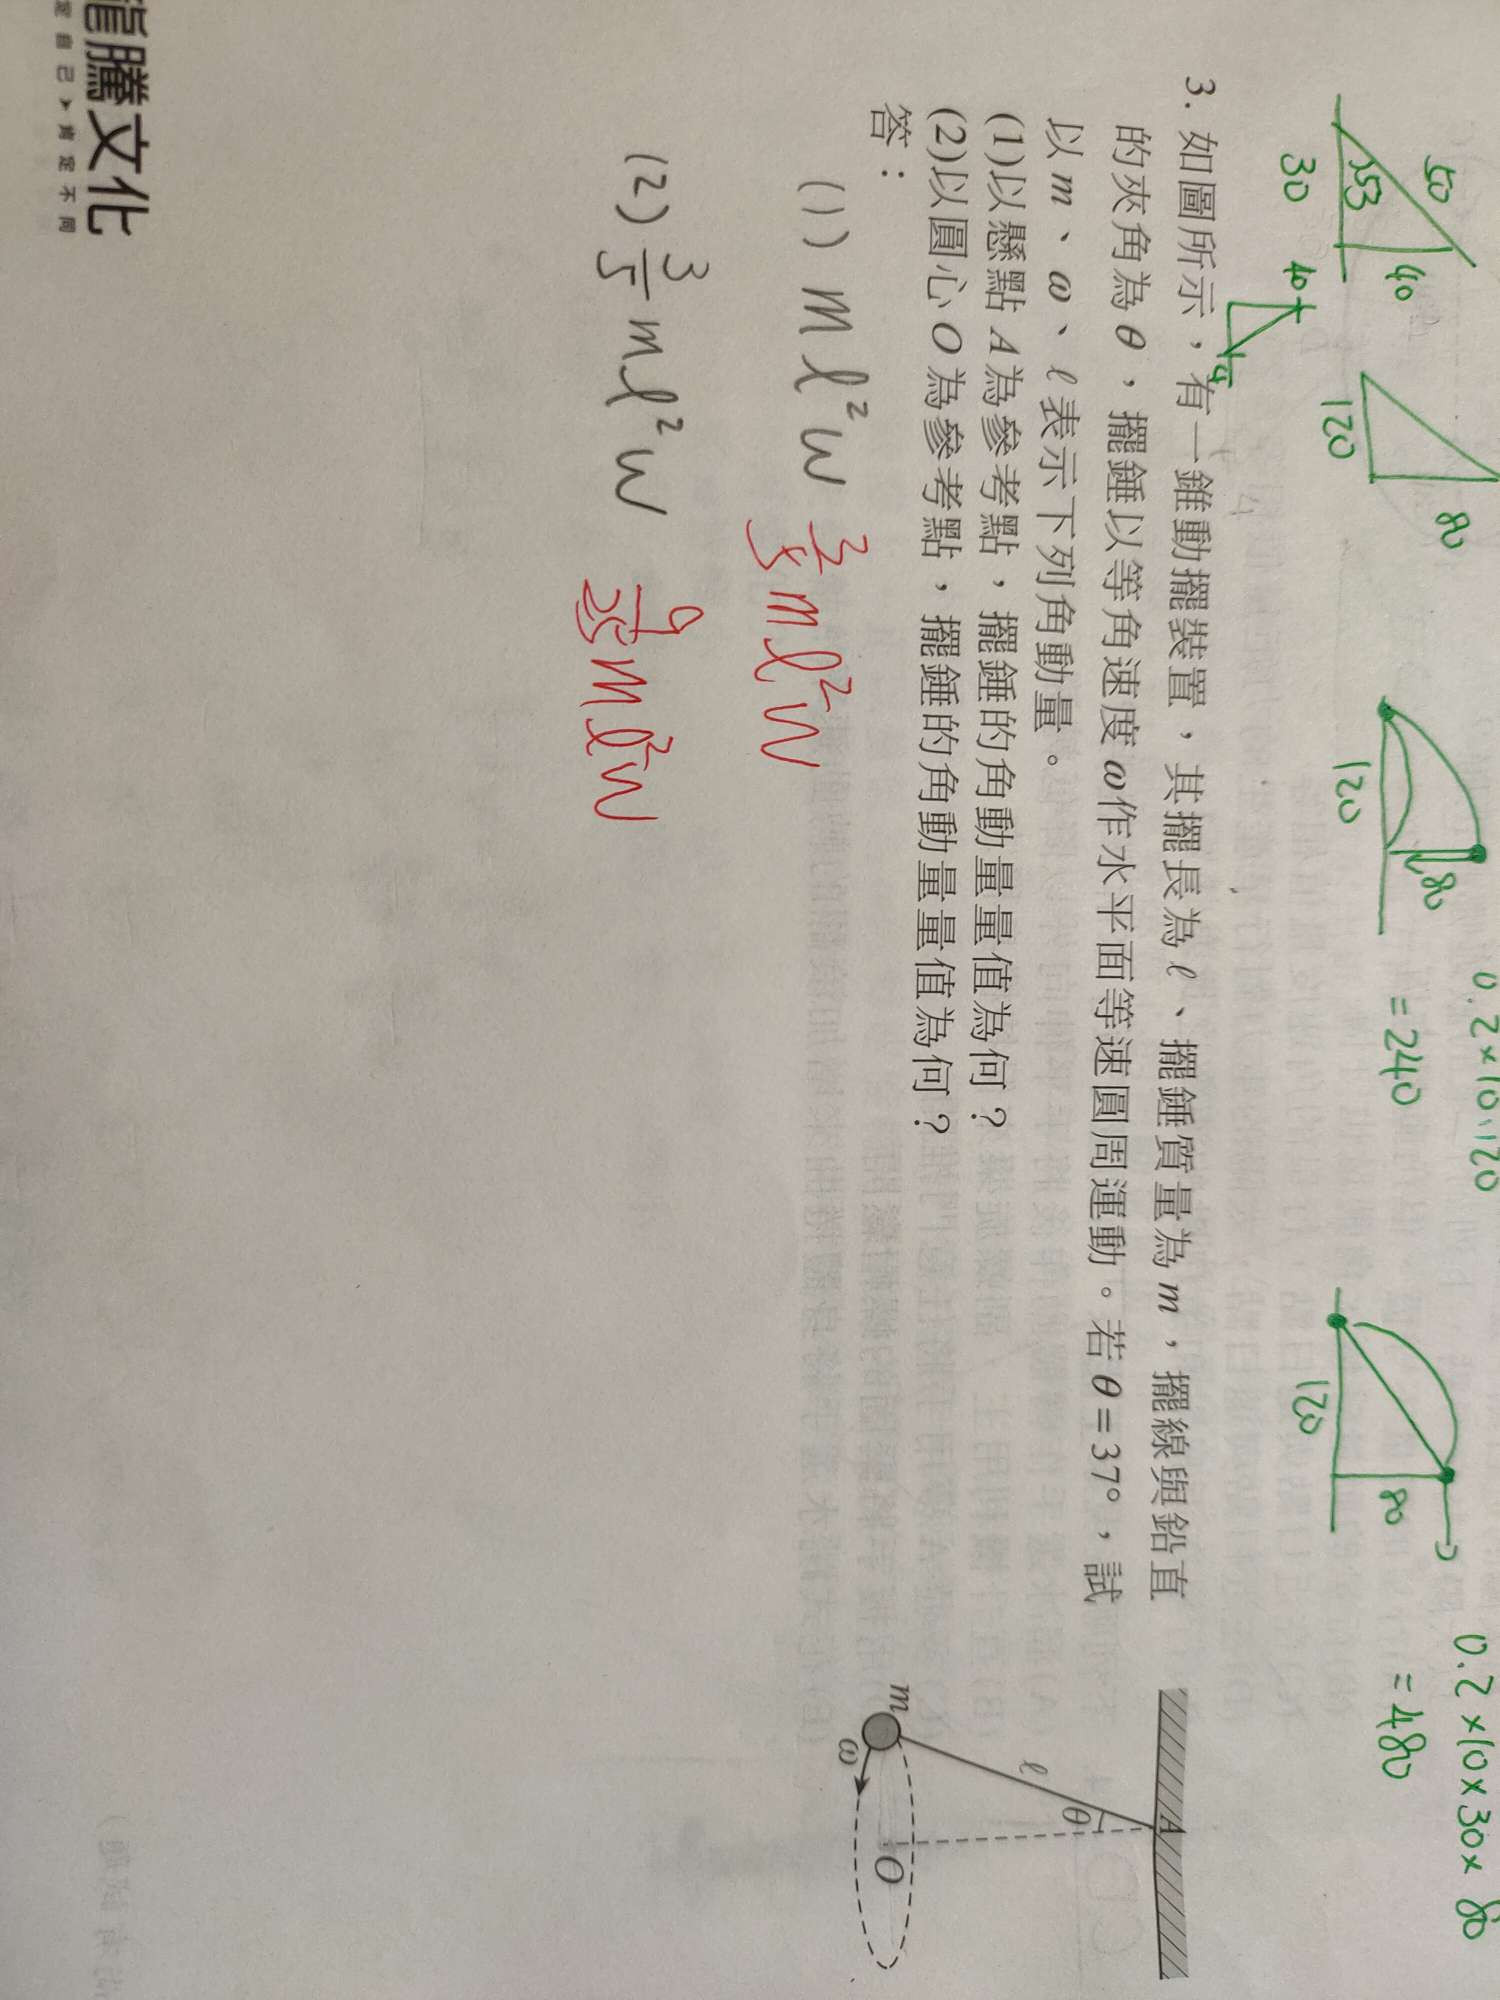 50
53
40
30
40
120
80
120
80
0.2×10×120
= 240
120
80
0.2×10×30×80
= 480
3. 如圖所示，有一錐動擺裝置，其擺長為ℓ、擺錘質量為m，擺線與鉛直
的夾角為θ，擺錘以等角速度ω作水平面等速圓周運動。若θ=37°，試
以m、ω、ℓ表示下列角動量。
(1)以懸點A為參考點，擺錘的角動量量值為何？
(2)以圓心O為參考點，擺錘的角動量量值為何？
答：
A
θ
ℓ
m
ω
O
(1) mℓ²w 3/5 mℓ²w
(2) 3/5 mℓ²w 9/25 mℓ²w
龍騰文化
定自己▶肯定不同